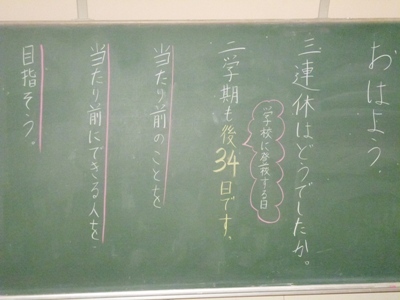 おはよう。
三連休はどうでしたか。
学校に登校する日
二学期も後34日です。
当たり前のことを
当たり前にできる人を
目指そう。